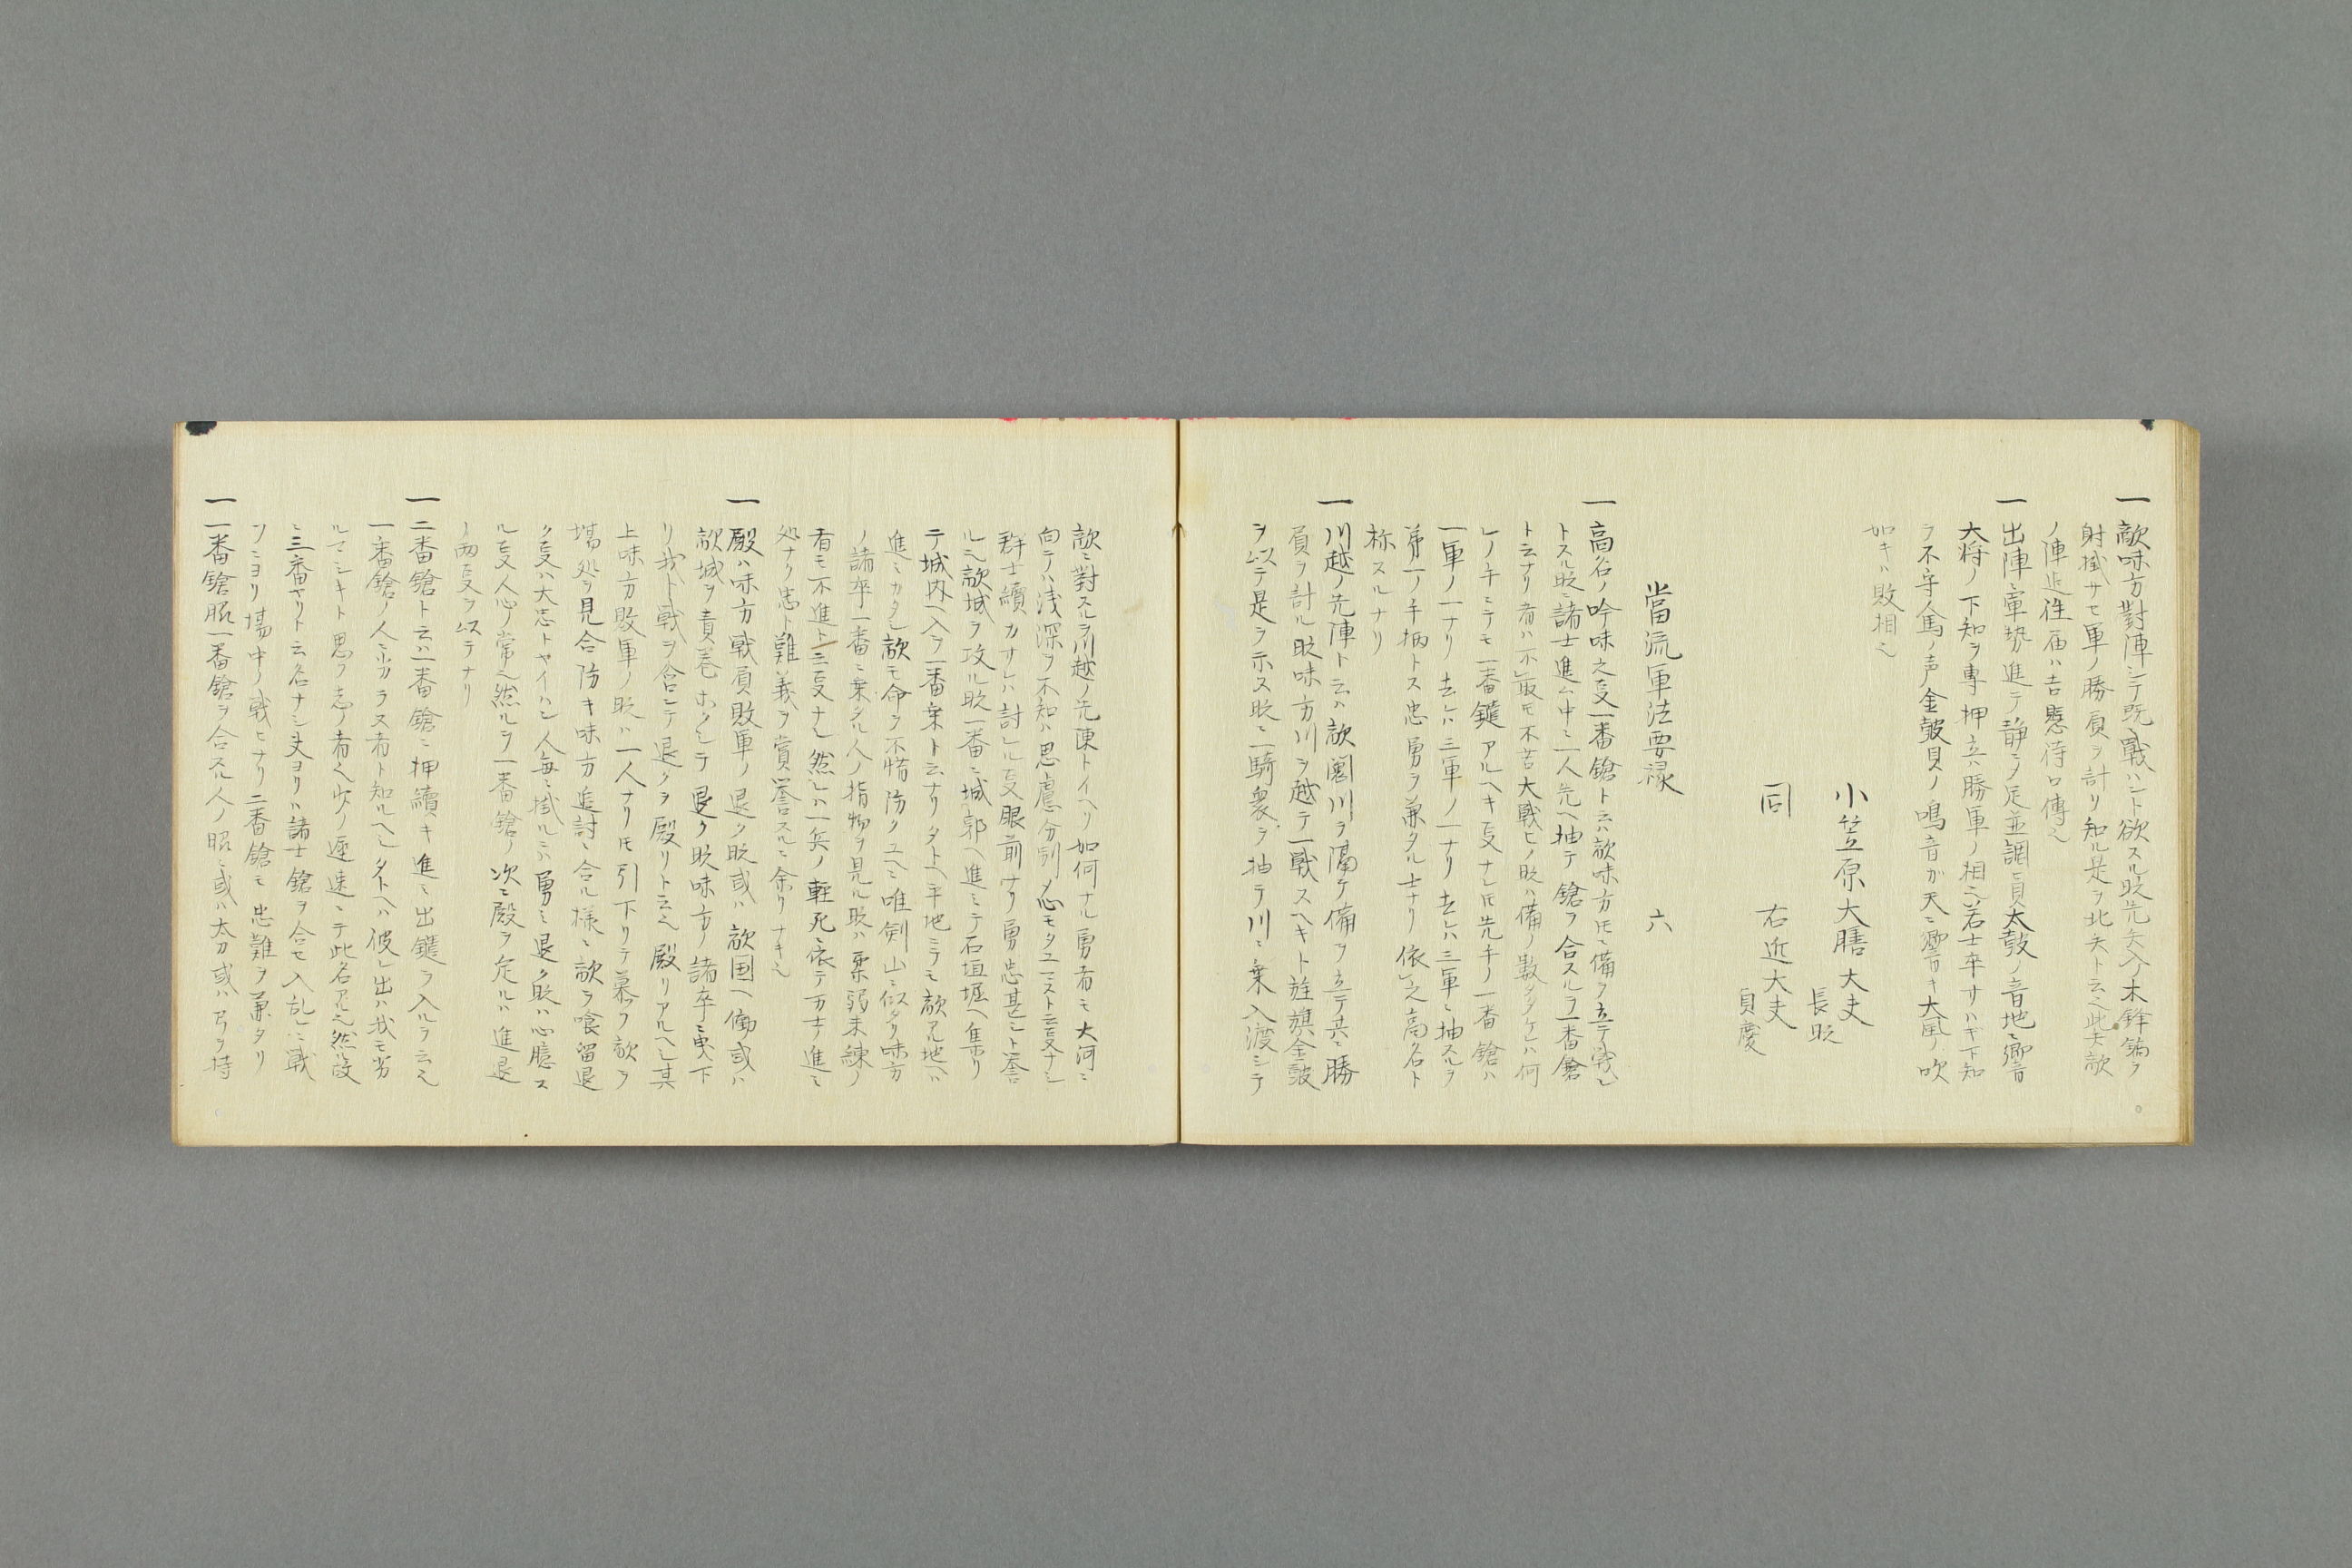 一 敵味方對陣シテ既ニ戰ハント欲スル時先矢今木鋒鏑ヲ
射掛サセ軍ノ勝負ヲ計リ知ル是ヲ北矢ト云之此矢敵
ノ陣迄往届ハ吉懸待口傳之
一 出陣ニ軍勢進テ静ニノ足並調ヒ貝太鼓ノ音地ニ響
大将ノ下知ヲ専押立ハ勝軍ノ相之若士卒サハギ下知
ヲ不守人馬ノ声金皷貝ノ鳴音ガ天ニ響キ大風ノ吹
如キハ敗相之
小笠原大膳大夫
長時
同 右近大夫
貞慶
當流軍法要禄 六
一 高名ノ吟味之㕝一番鎗ト云ハ敵味方氏ニ備ヲ立テ戰ン
トスル時ニ諸士進ム中ニ一人先ヘ抽テ鎗ヲ合スルヲ一番鎗
ト云ナリ首ハ不取氏不苦大戰ヒノ時ハ備ノ數多ケレハ何
レノ手ニテモ一番鑓アルヘキ㕝ナレ氏先手ノ一番鎗ハ
一軍ノ一ナリ 去レハ三軍ノ一ナリ 去レハ三軍ニ抽スルヲ
第一ノ手柄トス忠勇ヲ兼タル士ナリ依之高名ト
称スルナリ
一 川越ノ先陣ト云ハ敵國川ヲ隔ケ備ヲ立テ共ニ勝
負ヲ計ル時味方川ヲ越テ一戰スヘキト旌旗金皷
ヲ以テ是ヲ示ス時ニ一騎衆ヲ抽テ川ニ乗入渡シテ
敵ニ對スルヲ川越ノ先陳トイヘリ如何ナル勇者モ大河ニ
向テハ浅深ヲ不知ハ思慮分別ノ心モタユミスト云㕝ナシ
群士續カサレハ討レル㕝眼前ナリ勇忠甚シト誉
ル之敵城ヲ攻ル時一番ニ城郭ヘ進ミテ石垣堀ヘ集リ
テ城内ヘ入ヲ一番乗ト云ナリタトヘ平地ニテモ敵アル地ハ
進ミカタシ敵モ命ヲ不惜防クユヘニ唯剣山ニ似タリ味方
ノ諸卒一番ニ乗タル人ノ指物ヲ見ル時ハ柔弱未練ノ
者モ不進ト云㕝ナシ然レハ一兵ノ軽死ニ依テ万士進ミ
処ナク忠ト難義ヲ賞誉スルニ余リナキ之
一 殿ハ味方戰負敗軍ノ退ク時或ハ敵国ヘ働或ハ
敵城ヲ責巻ホクシテ退ク時味方ノ諸卒ニ㕝下
リ我ト戰ヲ合シテ退クヲ殿リト云之殿リアルヘシ其
上味方敗軍ノ時ハ一人ナリ氏引下リテ慕フ敵ヲ
場処ヲ見合防キ味方追討ニ合ル様ニ敵ヲ喰留退
ク㕝ハ大忠トヤイハン人毎ニ掛ルニハ勇ミ退ク時ハ心臆ス
ル㕝人心ノ常之然ルヲ一番鎗ノ次ニ殿ヲ定ルハ進退
ノ両㕝ヲ以テナリ
一 二番鎗ト云ハ一番鎗ニ押續キ進ミ出鑓ヲ入ルヲ云之
一番鎗ノ人ニ劣ラス者ト知ルヘシタトヘハ彼レ出ハ我モ劣
ルマシキト思フ志ノ者之少ノ遲速ニテ此名アル之然ル故
ニ三番ヤリト云名ナシ夫ヨリハ諸士鎗ヲ合セ入乱レニ戰
フニヨリ場中ノ戰ヒナリ二番鎗モ忠難ヲ兼タリ
一 一番鎗脇一番鎗ヲ合スル人ノ脇ニ或ハ太刀或ハ弓ヲ持